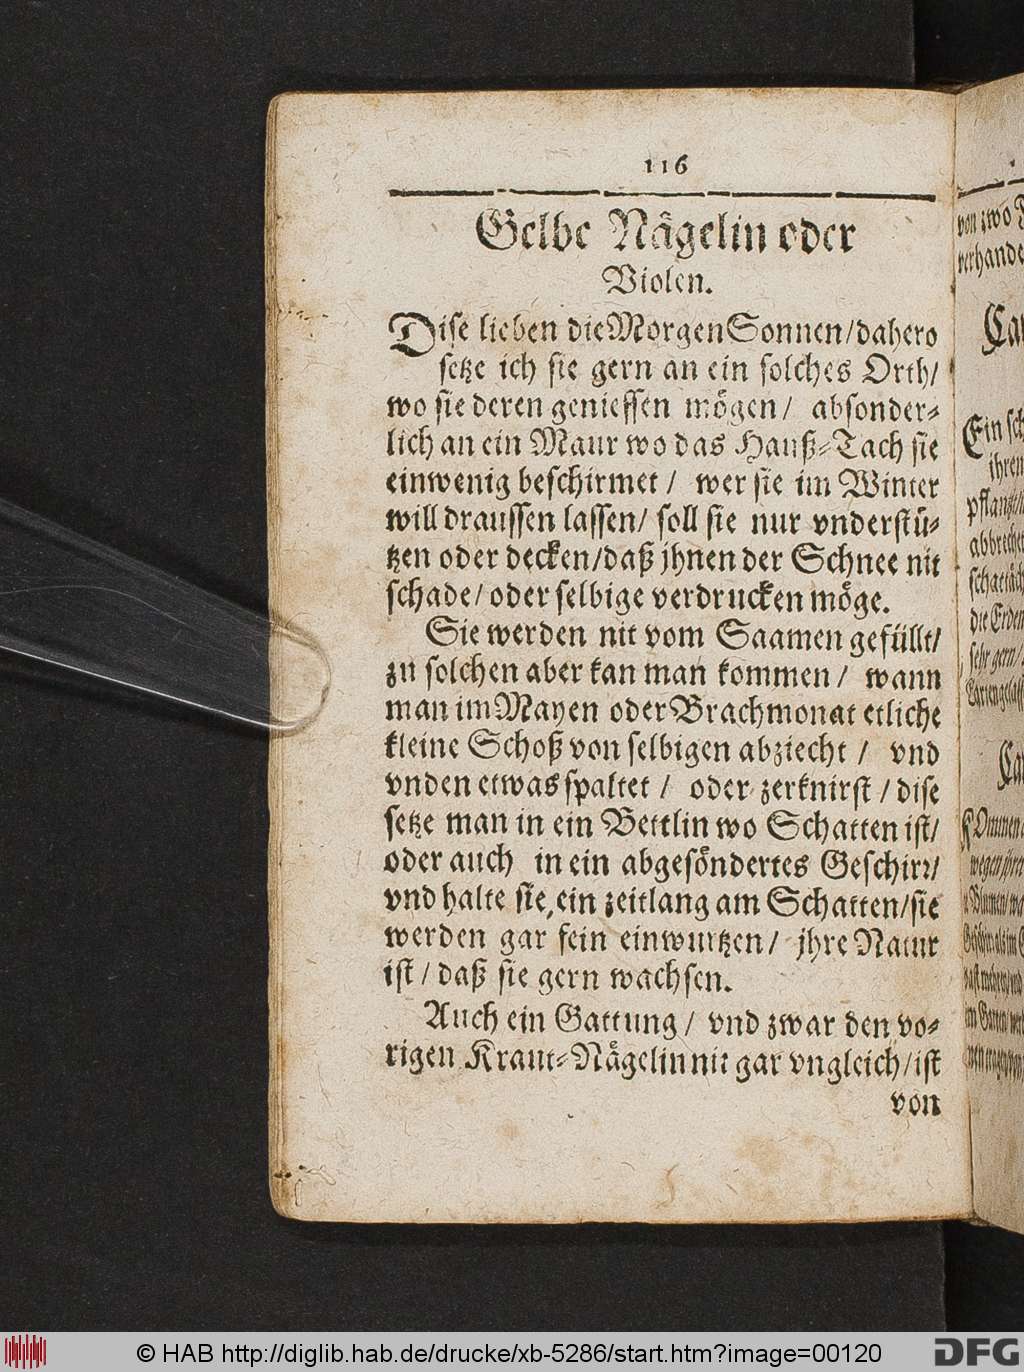 116
Gelbe Nägelin oder
Violen.
Dise lieben die Morgen Sonnen/dahero
setze ich sie gern an ein solches Orth/
wo sie deren geniessen mögen/ absonder-
lich an ein Maur wo das Hauß-Tach sie
einwenig beschirmet/ wer sie im Winter
will draussen lassen/ soll sie nur vnderstü-
tzen oder decken/daß jhnen der Schnee nit
schade/oder selbige verdrucken möge.
Sie werden nit vom Saamen gefüllt/
zu solchen aber kan man kommen/ wann
man im Mayen oder Brachmonat etliche
kleine Schoß von selbigen abziecht/ vnd
vnden etwas spaltet/ oder zerknirst/dise
setze man in ein Bettlin wo Schatten ist/
oder auch in ein abgesöndertes Geschirr/
vnd halte sie, ein zeitlang am Schatten/sie
werden gar fein einwurtzen/ jhre Natur
ist/daß sie gern wachsen.
Auch ein Gattung/ vnd zwar den vo-
rigen Kraut-Nägelin nit gar vngleich/ist
von
von zwo
verhande
Ein sch
ihren
pflantz
abbreche
schattäch
die Erden
sehr gern/
© HAB http://diglib.hab.de/drucke/xb-5286/start.htm?image=00120
DFG